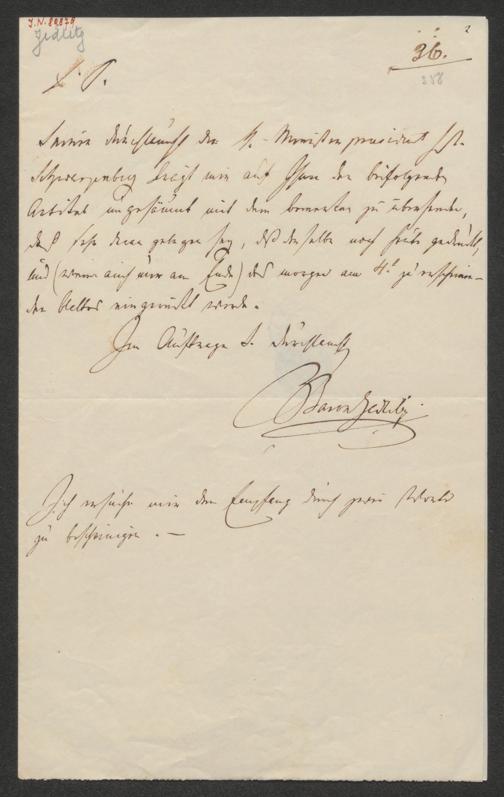 I.N. 88879
Zedlitz
2
36.
258
S. P.
Seine Durchlaucht der H. Ministerpräsident Fst.
Schwarzenberg trägt mir auf Ihnen den beifolgenden
Artikel ungesäumt mit dem bemerken zu übersenden,
daß sehr daran gelegen sey, daß derselbe noch heute gedruckt,
und (wenn auch nur am Ende) des morgen am 4t zu erscheinen-
den Blattes eingerückt werde.
Im Auftrage S. Durchlaucht
Baron Zedlitz
Ich ersuche mir den Empfang durch zwei Worte
zu bescheinigen. —